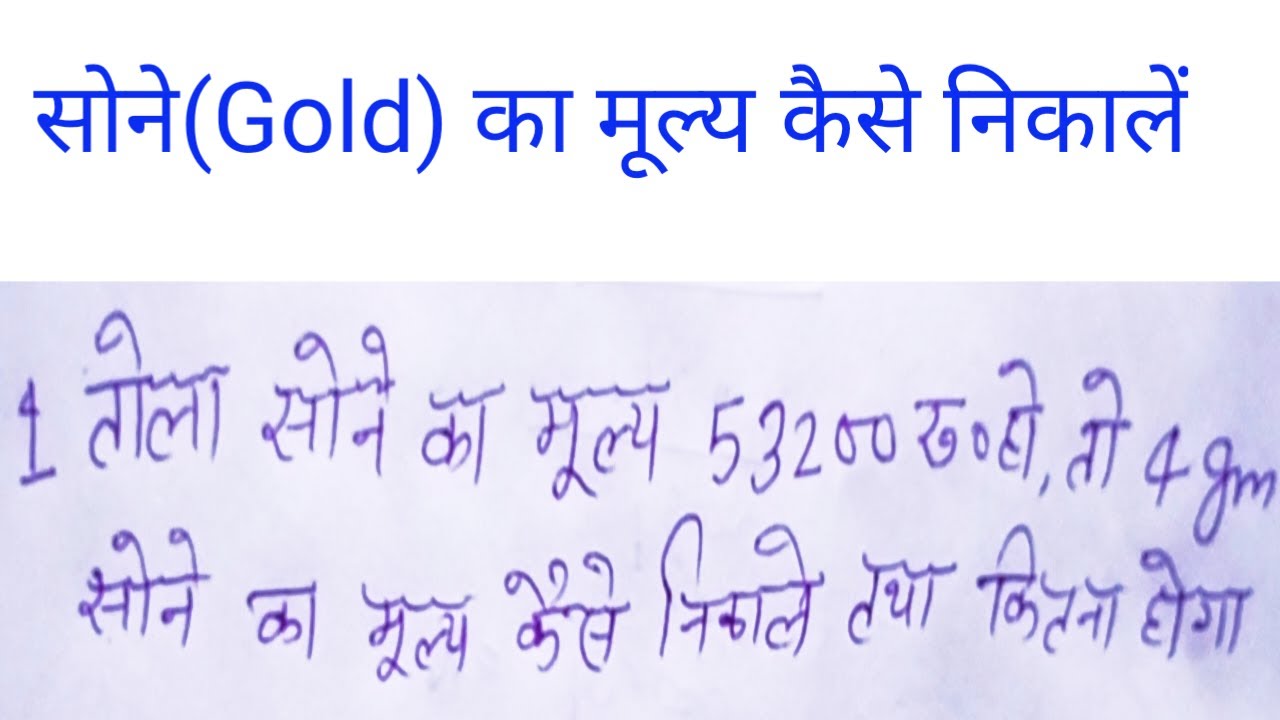 सोने(Gold) का मूल्य कैसे निकालें
1 तोला सोने का मूल्य 53200 रु० हो, तो 4 gm
सोने का मूल्य कैसे निकाले तथा कितना होगा